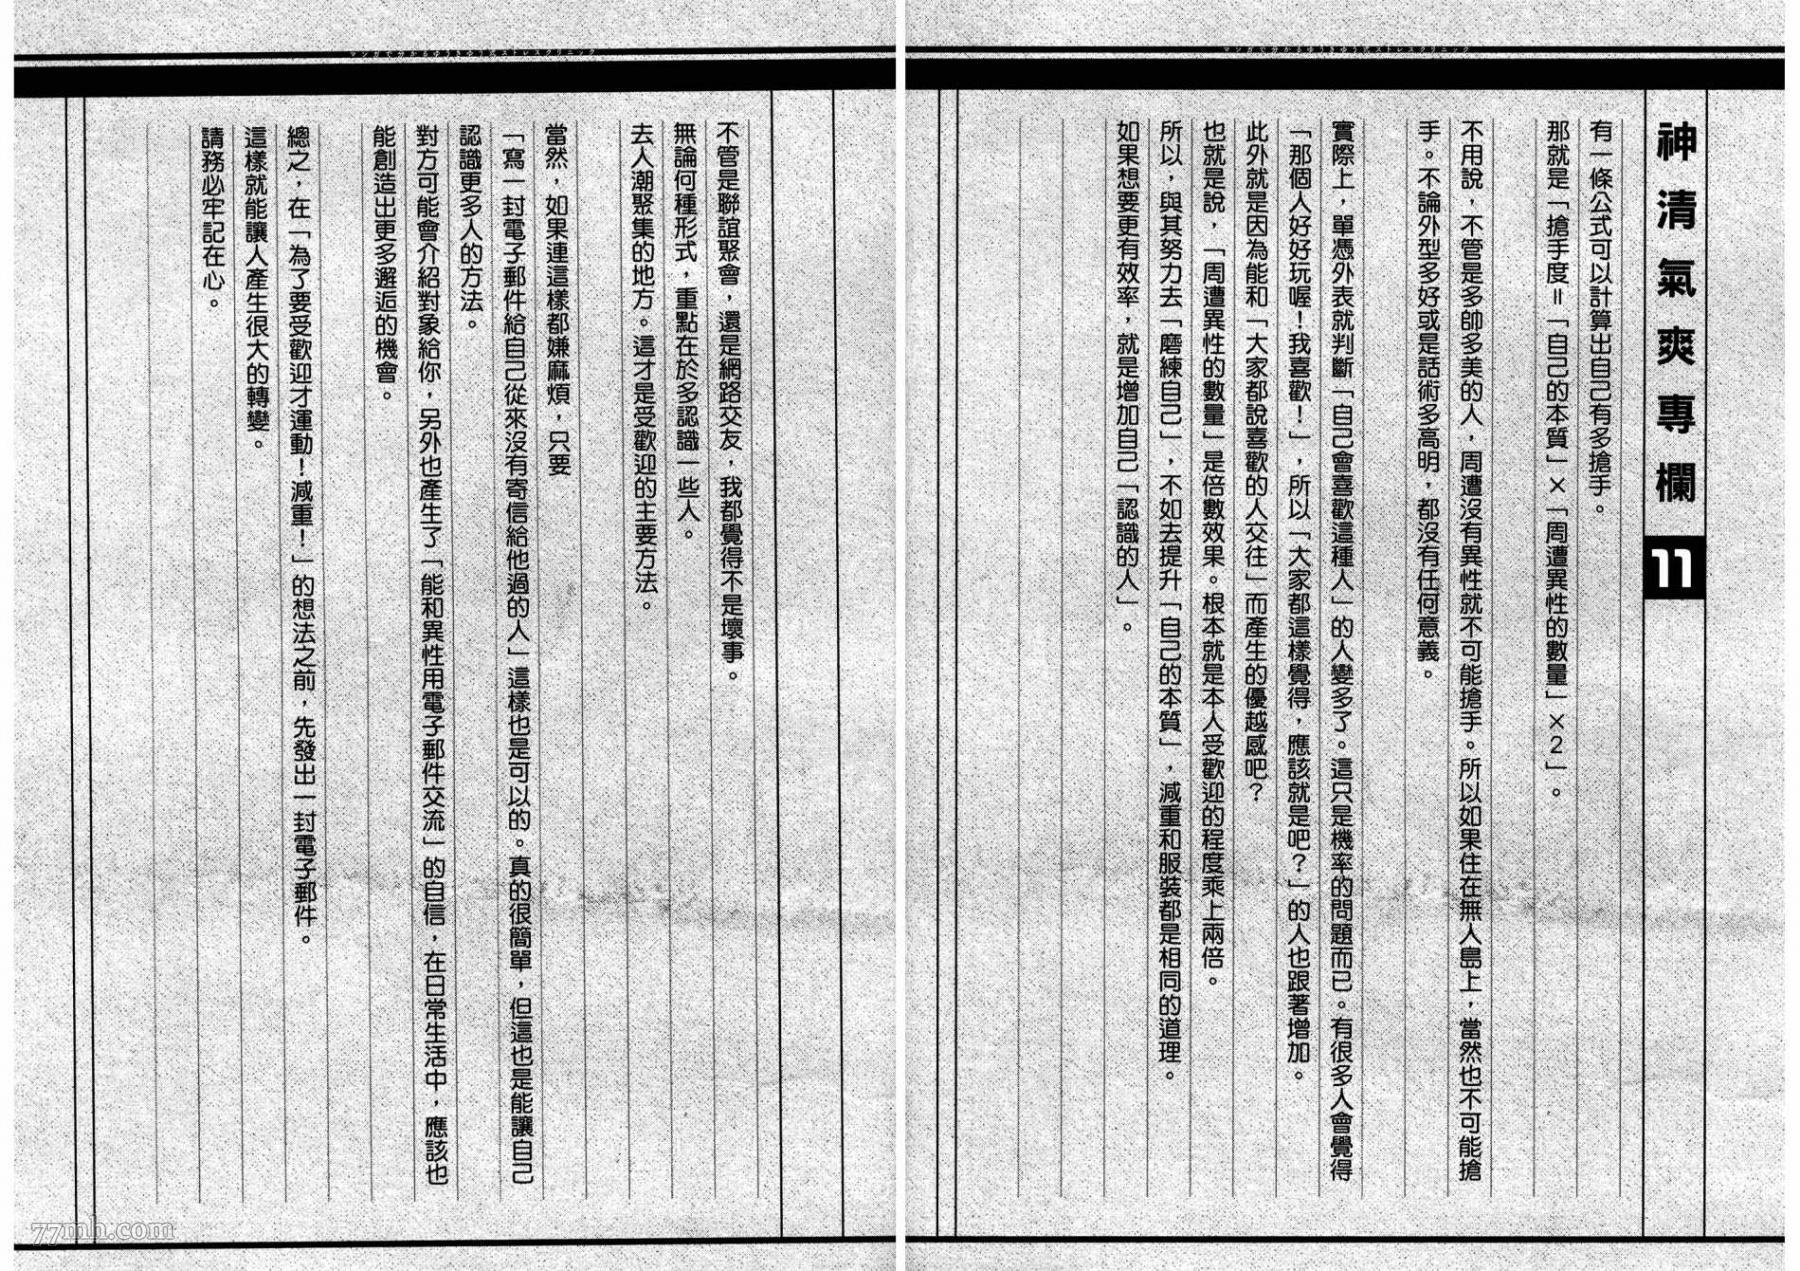 マンガで分かるゆうきゆう式ストレスクリニック
神清氣爽專欄 11
有一條公式可以計算出自己有多搶手。
那就是「搶手度＝「自己的本質」×「周遭異性的數量」×2」。
不用說，不管是多帥多美的人，周遭沒有異性就不可能搶手。所以如果住在無人島上，當然也不可能搶
手。不論外型多好或是話術多高明，都沒有任何意義。
實際上，單憑外表就判斷「自己會喜歡這種人」的人變多了。這只是機率的問題而已。有很多人會覺得
「那個人好好玩喔！我喜歡！」，所以「大家都這樣覺得，應該就是吧？」的人也跟著增加。
此外就是因為能和「大家都說喜歡的人交往」而產生的優越感吧？
也就是說，「周遭異性的數量」是倍數效果。根本就是本人受歡迎的程度乘上兩倍。
所以，與其努力去「磨練自己」，不如去提升「自己的本質」，減重和服裝都是相同的道理。
如果想要更有效率，就是增加自己「認識的人」。
マンガで分かるゆうきゆう式ストレスクリニック
不管是聯誼聚會，還是網路交友，我都覺得不是壞事。
無論何種形式，重點在於多認識一些人。
去人潮聚集的地方。這才是受歡迎的主要方法。
當然，如果連這樣都嫌麻煩，只要
「寫一封電子郵件給自己從來沒有寄信給他過的人」這樣也是可以的。真的很簡單，但這也是能讓自己
認識更多人的方法。
對方可能會介紹對象給你，另外也產生了「能和異性用電子郵件交流」的自信，在日常生活中，應該也
能創造出更多邂逅的機會。
總之，在「為了要受歡迎才運動！減重！」的想法之前，先發出一封電子郵件。
這樣就能讓人產生很大的轉變。
請務必牢記在心。
77mh.com